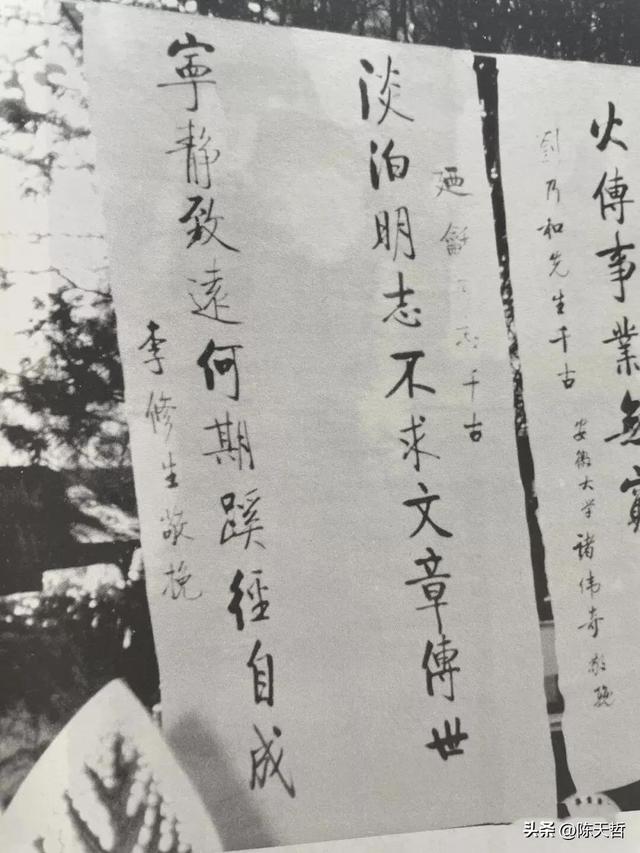 火傳事業無
劉乃和先生千古
安徽大学諸伟奇敬挽
廼龢同志千古
淡泊明志不求文章傳世
寧靜致遠何期蹊徑自成
李修生敬挽
头条 @陈天哲